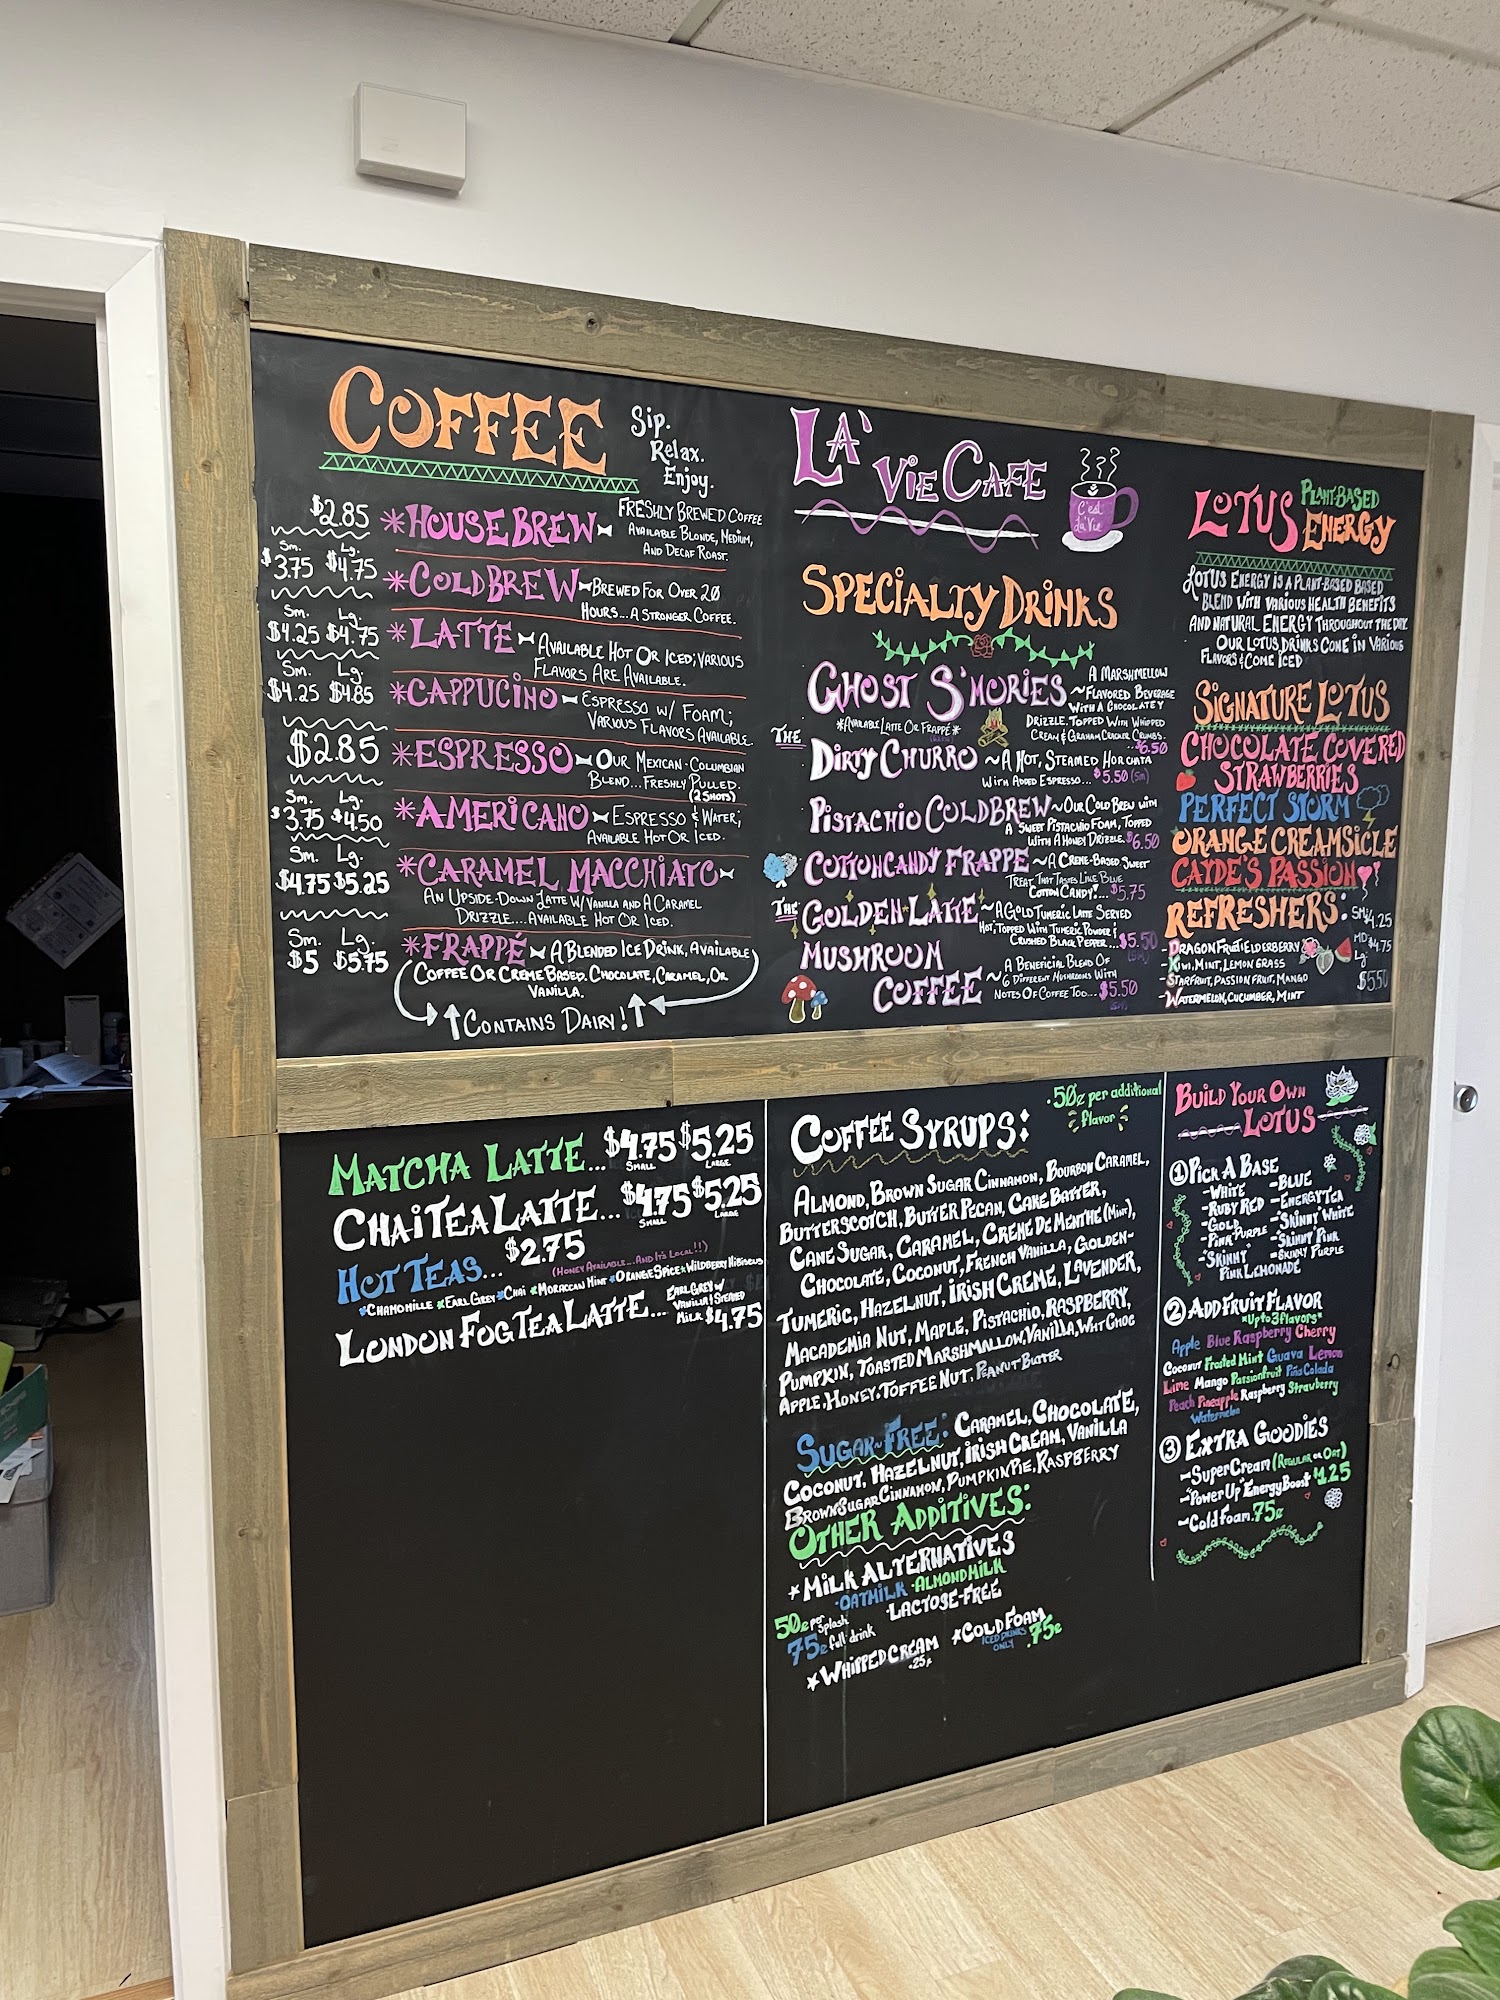 COFFEE
Sip.
Relax.
Enjoy.
$2.85 *HOUSE BREW FRESHLY BREWED COFFEE
AVAILABLE BLONDE, MEDIUM,
AND DECAF ROAST.
Sm. Lg.
$3.75 $4.75 *COLD BREW BREWED FOR OVER 20
HOURS...A STRONGER COFFEE.
Sm. Lg.
$4.25 $4.75 *LATTE AVAILABLE HOT OR ICED; VARIOUS
FLAVORS ARE AVAILABLE.
Sm. Lg.
$4.25 $4.85 *CAPPUCINO ESPRESSO W/ FOAM;
VARIOUS FLAVORS AVAILABLE.
$2.85 *ESPRESSO OUR MEXICAN-COLUMBIAN
BLEND...FRESHLY PULLED.
(2 SHOTS)
Sm. Lg.
$3.75 $4.50 *AMERICANO ESPRESSO & WATER;
AVAILABLE HOT OR ICED.
Sm. Lg.
$4.75 $5.25 *CARAMEL MACCHIATO
AN UPSIDE-DOWN LATTE W/ VANILLA AND A CARAMEL
DRIZZLE...AVAILABLE HOT OR ICED.
Sm. Lg.
$5 $5.75 *FRAPPÉ A BLENDED ICE DRINK, AVAILABLE
COFFEE OR CREME BASED. CHOCOLATE, CARAMEL, OR
VANILLA.
CONTAINS DAIRY!
LA' VIE CAFE
C'est
La'Vie
SPECIALTY DRINKS
GHOST S'MORIES ~ A MARSHMELLOW
FLAVORED BEVERAGE
WITH A CHOCOLATEY
DRIZZLE. TOPPED WITH WHIPPED
CREAM & GRAHAM CRACKER CRUMBS.
...$6.50
*AVAILABLE LATTE OR FRAPPÉ*
THE DIRTY CHURRO ~A HOT, STEAMED HORCHATA
WITH ADDED ESPRESSO... $5.50 (Sm)
PISTACHIO COLD BREW~OUR COLD BREW WITH
A SWEET PISTACHIO FOAM, TOPPED
WITH A HONEY DRIZZLE. $6.50
COTTON CANDY FRAPPE ~A CREME-BASED SWEET
TREAT THAT TASTES LIKE BLUE
COTTON CANDY!...$5.75
THE GOLDEN LATTE ~A GOLD TUMERIC LATTE SERVED
HOT, TOPPED WITH TUMERIC POWDER &
CRUSHED BLACK PEPPER...$5.50
MUSHROOM
COFFEE ~ A BENEFICIAL BLEND OF
6 DIFFERENT MUSHROOMS WITH
NOTES OF COFFEE TOO...$5.50
(Sm)
LOTUS PLANT-BASED
ENERGY
LOTUS ENERGY IS A PLANT-BASED BASED
BLEND WITH VARIOUS HEALTH BENEFITS
AND NATURAL ENERGY THROUGHOUT THE DAY.
OUR LOTUS DRINKS COME IN VARIOUS
FLAVORS & COME ICED
SIGNATURE LOTUS
CHOCOLATE COVERED
STRAWBERRIES
PERFECT STORM
ORANGE CREAMSICLE
CAYDE'S PASSION
REFRESHERS: SM/4.25
MD: $4.75
Lg: $5.50
-DRAGON FRUIT/ELDERBERRY
-KIWI, MINT, LEMON GRASS
-STARFRUIT, PASSION FRUIT, MANGO
-WATERMELON, CUCUMBER, MINT
MATCHA LATTE... $4.75 SMALL $5.25 LARGE
CHAI TEA LATTE... $4.75 SMALL $5.25 LARGE
HOT TEAS... $2.75
(HONEY AVAILABLE...AND IT'S LOCAL!!)
*CHAMOMILLE *EARL GREY *CHAI *MORACCAN MINT *ORANGE SPICE *WILDBERRY HIBISCUS
LONDON FOG TEA LATTE... EARL GREY W/
VANILLA & STEAMED
MILK $4.75
COFFEE SYRUPS: .50¢ per additional
flavor
ALMOND, BROWN SUGAR CINNAMON, BOURBON CARAMEL,
BUTTERSCOTCH, BUTTER PECAN, CAKE BATTER,
CANE SUGAR, CARAMEL, CREME DE MENTHE (MINT),
CHOCOLATE, COCONUT, FRENCH VANILLA, GOLDEN-
TUMERIC, HAZELNUT, IRISH CREME, LAVENDER,
MACADEMIA NUT, MAPLE, PISTACHIO, RASPBERRY,
PUMPKIN, TOASTED MARSHMALLOW, VANILLA, WHT CHOC
APPLE, HONEY, TOFFEE NUT, PEANUT BUTTER
SUGAR-FREE: CARAMEL, CHOCOLATE,
COCONUT, HAZELNUT, IRISH CREAM, VANILLA
BROWN SUGAR CINNAMON, PUMPKIN PIE, RASPBERRY
OTHER ADDITIVES:
*MILK ALTERNATIVES
·OATMILK ·ALMONDMILK
·LACTOSE-FREE
50¢ per splash
75¢ full drink
*WHIPPED CREAM
.25¢
*COLD FOAM
ICED DRINKS
ONLY .75¢
BUILD YOUR OWN
LOTUS
① PICK A BASE
-WHITE -BLUE
-RUBY RED -ENERGY TEA
-GOLD -"SKINNY" WHITE
-PINK-PURPLE -"SKINNY" PINK
-"SKINNY" PINK LEMONADE -SKINNY PURPLE
② ADD FRUIT FLAVOR
*Up to 3 flavors*
Apple Blue Raspberry Cherry
Coconut Frosted Mint Guava Lemon
Lime Mango Passionfruit Piña Colada
Peach Pineapple Raspberry Strawberry
Watermelon
③ EXTRA GOODIES
-SUPER CREAM (REGULAR OR OAT)
-"Power Up" Energy Boost $1.25
-Cold Foam .75¢